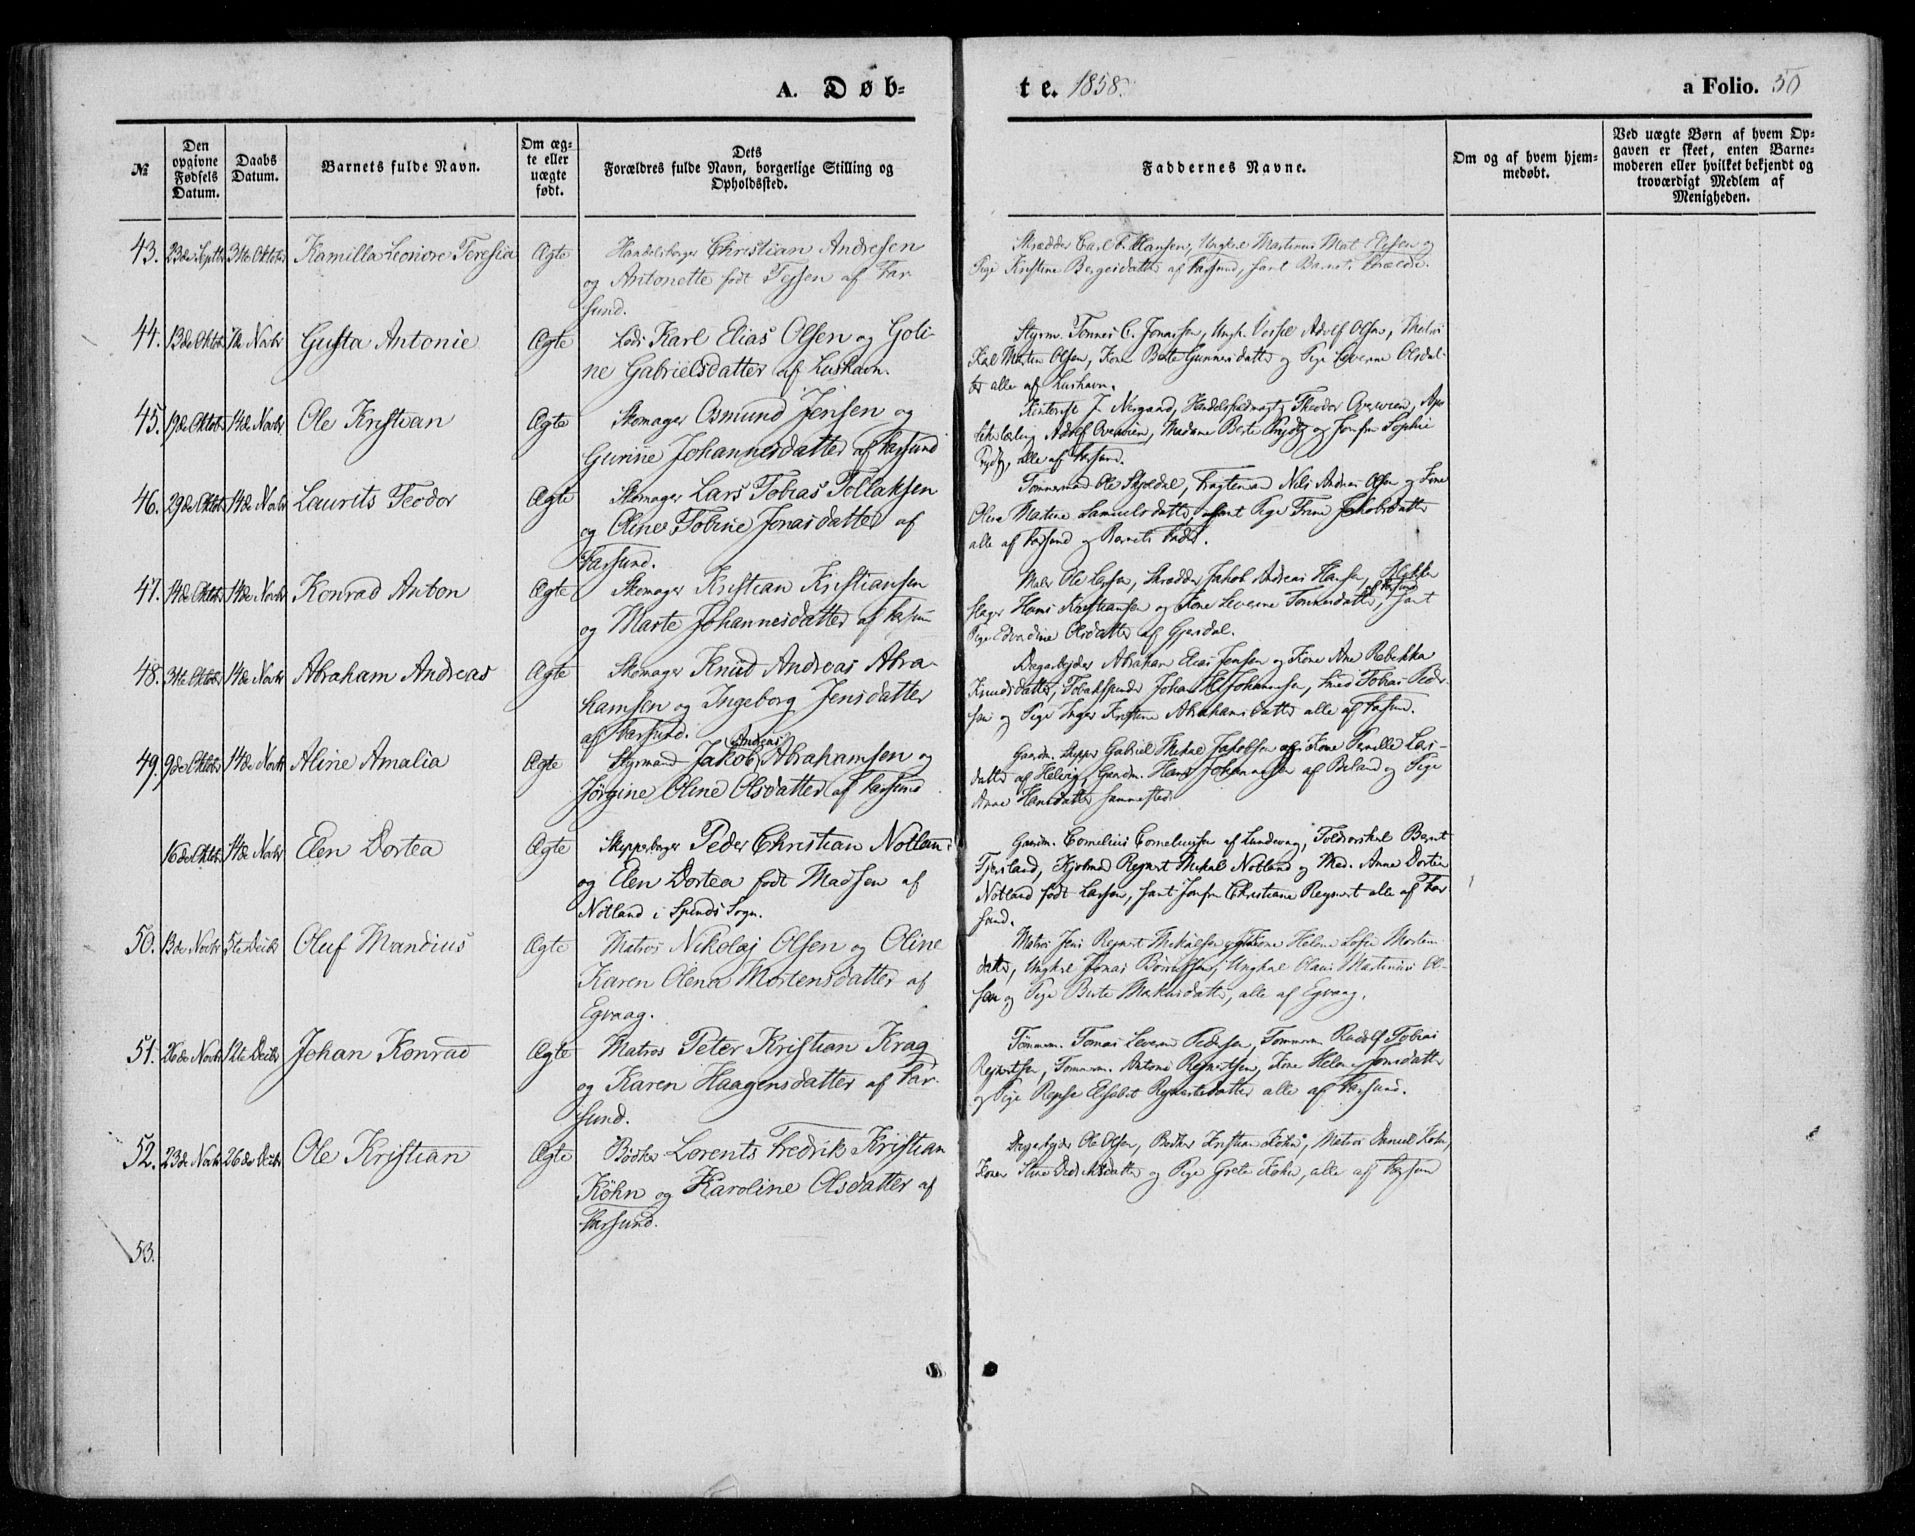 A. Døb-
te. 1858.
a Folio. 50
№
Den opgivne Fødsels Datum.
Daabs Datum.
Barnets fulde Navn.
Om ægte eller uægte født.
Dets Forældres fulde Navn, borgerlige Stilling og Opholdssted.
Faddernes Navne.
Om og af hvem hjemmedøbt.
Ved uægte Børn af hvem Opgaven er skeet, enten Barnemoderen eller hvilket bekjendt og troværdigt Medlem af Menigheden.
43. 23de Septbr 31te Oktober Kamilla Leonore Teresia Ægte Handelsborger Christian Andresen
og Antonette født Tejsen af Far-
sund.
Skrædder Carl F. Hansen, Ungkrl Martinus
Pige Kristine Bergesdatter af Farsund, samt Barnets Forældre.
44. 13de Oktob. 7de Novbr Gusta Antonie Ægte Lods Karl Elias Olsen og Goli-
ne Gabrielsdatter af Lushavn.
Styrm. Tønnes C. Jonassen, Ungk. Adolf Olsen, Matros
Kal Morten Olsen, Kone Berte Gunnersdatter og Pige Severine Olsdat-
ter alle af Lushavn.
45. 19de Oktob. 14de Novbr Ole Kristian Ægte Skomager Osmund Jensen og
Gurine Johannesdatter af Farsund
J. Nergaard, Handelsfuldmægt. Theodor Overvien, Apo-
Adolf Overvien, Madame Berte Prydz og Jomfru Sophie
Prydz, alle af Farsund.
46. 29de Oktob. 14de Novbr Laurits Teodor Ægte Skomager Lars Tobias Tollaksen
og Oline Tobine Jonasdatter af
Farsund.
Tømmermand Ole Skjoldal, Fragtemand Nils Andreas Olsen og Kone
Olava Martine Samuelsdatter, samt Pige Trine Jakobsdatter
alle af Farsund og Barnets Fader.
47. 14de Oktob. 14de Novbr Konrad Anton Ægte Skomager Kristian Kristiansen
og Marte Johannesdatter af Farsun
Maler Ole Larsen, Skrædder Jakob Andreas Hansen, Blikken-
slager Hans Kristiansen og Kone Severine Tønnesdatter af Farsund, samt
Pige Edvardine Olsdatter af Gjersdal.
48. 31te Oktob. 14de Novbr Abraham Andreas Ægte Skomager Knud Andreas Abra-
hamsen og Ingeborg Jensdatter
af Farsund.
Dagarbejder Abraham Elias Jensen og Kone Ane Rebekka
Knudsdatter, Tobakspinder Johan H. Johannesen, Smed Tobias Peder-
sen og Pige Inger Kristine Abrahamsdatter alle af Farsund.
49. 9de Oktober 14de Novbr Aline Amalia Ægte Styrmand Jakob Andreas Abrahamsen og
Jørgine Oline Olsdatter af Farsund
Gaardm. Skipper Gabriel Mekal Jakobsen og Kone Pernille Lars-
datter af Helvig, Gaardm. Hans Johannesen af Beland og Pige
Anne Hansdatter sammested.
16de Oktob. 14de Novbr Elen Dortea Ægte Skipperborger Peder Christian Notland
og Elen Dortea født Madsen af
Notland i Spinds Sogn.
Gaardm. Cornelius Corneliussen af Lundevaag, Toldrorskarl Bernt
Tjersland, Kjøbmand Reinert Mekal Notland og Mad. Anne Dortea
Notland født Larsen, samt Jomfru Christiane Reinert alle af Far-
sund.
50. 13de Novbr 5te Decbr Oluf Mandius Ægte Matros Nikolaj Olsen og Oline
Karen Olena Mortensdatter af
Egvaag.
Matros Jens Reinert Mekalsen og Kone Helene Sofie Morten-
datter, Ungkrl Jonas Børresen, Ungkrl Olaus Martinius Ol-
sen og Pige Berte Markusdatter, alle af Egvaag.
51. 26de Novbr 12te Decbr Johan Konrad Ægte Matros Peter Kristian Krag
og Karen Haagensdatter af Far-
sund.
Tømmerm. Tomas Severin Pedersen, Tømmerm. Rudolf Tobias
Reinertsen, Tømmerm. Antoni Reinertsen, Kone Helene Jonsdatter
og Pige Elsabet Reinertsdatter alle af Farsund.
52. 23de Novbr 26de Decbr Ole Kristian Ægte Bødker Lorents Fredrik Kristian
Köhn og Karoline Olsdatter af
Farsund.
Dagarbejder Ole Olsen, Bødker Kristian Köhn, Matros Daniel Köhn,
Kone Stine Didriksdatter og Pige Grete Köhn, alle af Farsund
53.